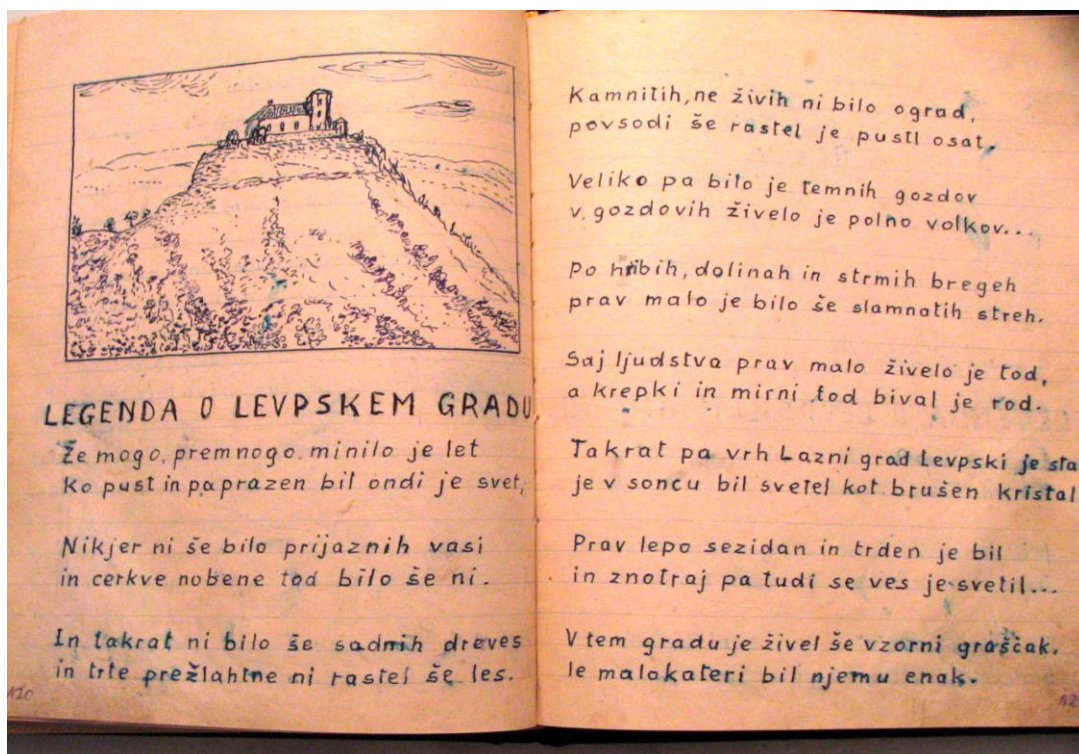 LEGENDA O LEVPSKEM GRADU
Že mogo, premnogo minilo je let
ko pust in pa prazen bil ondi je svet,
Nikjer ni še bilo prijaznih vasi
in cerkve nobene tod bilo še ni.
In takrat ni bilo še sadnih dreves
in trte prežlahtne ni rastel še les.
120
Kamnitih, ne živih ni bilo ograd,
povsodi še rastel je pusti osat.
Veliko pa bilo je temnih gozdov
v gozdovih živelo je polno volkov...
Po hribih, dolinah in strmih bregeh
prav malo je bilo še slamnatih streh.
Saj ljudstva prav malo živelo je tod,
a krepki in mirni tod bival je rod.
Takrat pa vrh Lazni grad Levpski je sta
je v soncu bil svetel kot brušen kristal
Prav lepo sezidan in trden je bil
in znotraj pa tudi se ves je svetil...
V tem gradu je živel še vzorni graščak.
le malokateri bil njemu enak.